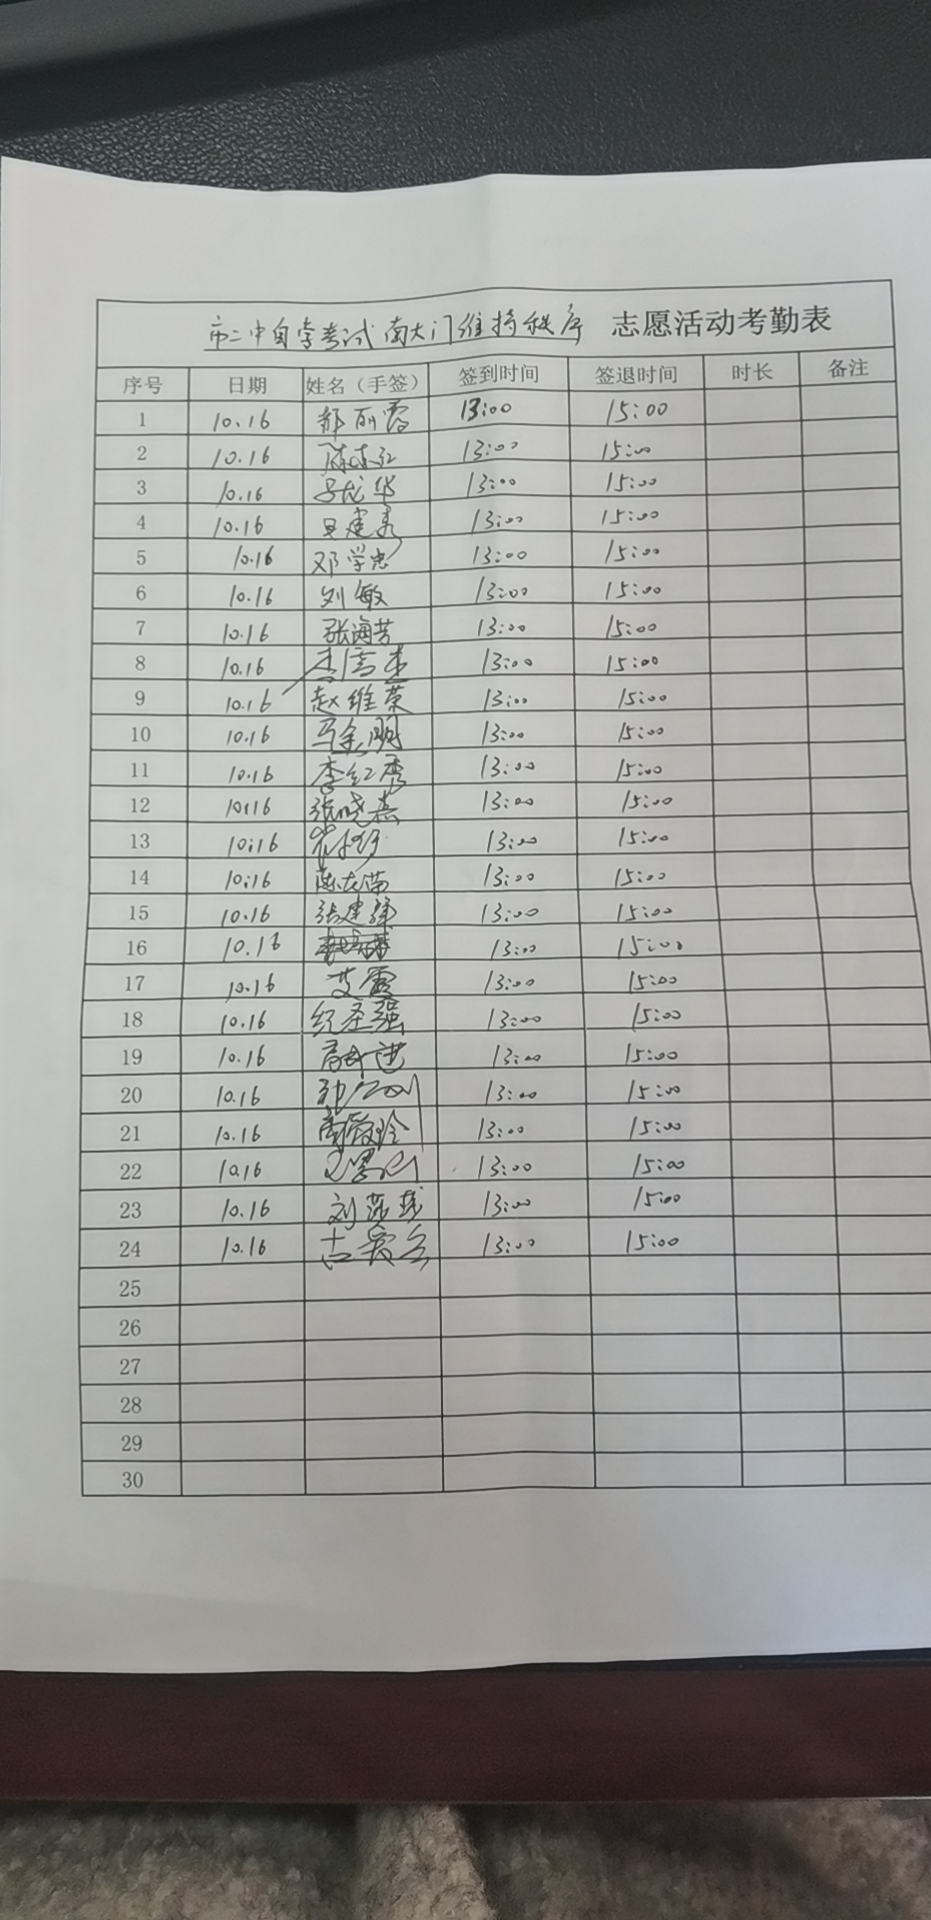 市二中自学考试南大门维持秩序 志愿活动考勤表
序号 日期 姓名（手签） 签到时间 签退时间 时长 备注
1 10.16 13:00 15:00
2 10.16 13:00 15:00
3 10.16 13:00 15:00
4 10.16 13:00 15:00
5 10.16 邓学忠 13:00 15:00
6 10.16 刘敏 13:00 15:00
7 10.16 张海芳 13:00 15:00
8 10.16 13:00 15:00
9 10.16 赵维荣 13:00 15:00
10 10.16 13:00 15:00
11 10.16 李红秀 13:00 15:00
12 10:16 张晓燕 13:00 15:00
13 10:16 13:00 15:00
14 10:16 13:00 15:00
15 10.16 张建强 13:00 15:00
16 10.16 13:00 15:00
17 10.16 艾霞 13:00 15:00
18 10.16 纪圣强 13:00 15:00
19 10.16 13:00 15:00
20 10.16 13:00 15:00
21 10.16 13:00 15:00
22 10.16 13:00 15:00
23 10.16 13:00 15:00
24 10.16 13:00 15:00
25
26
27
28
29
30